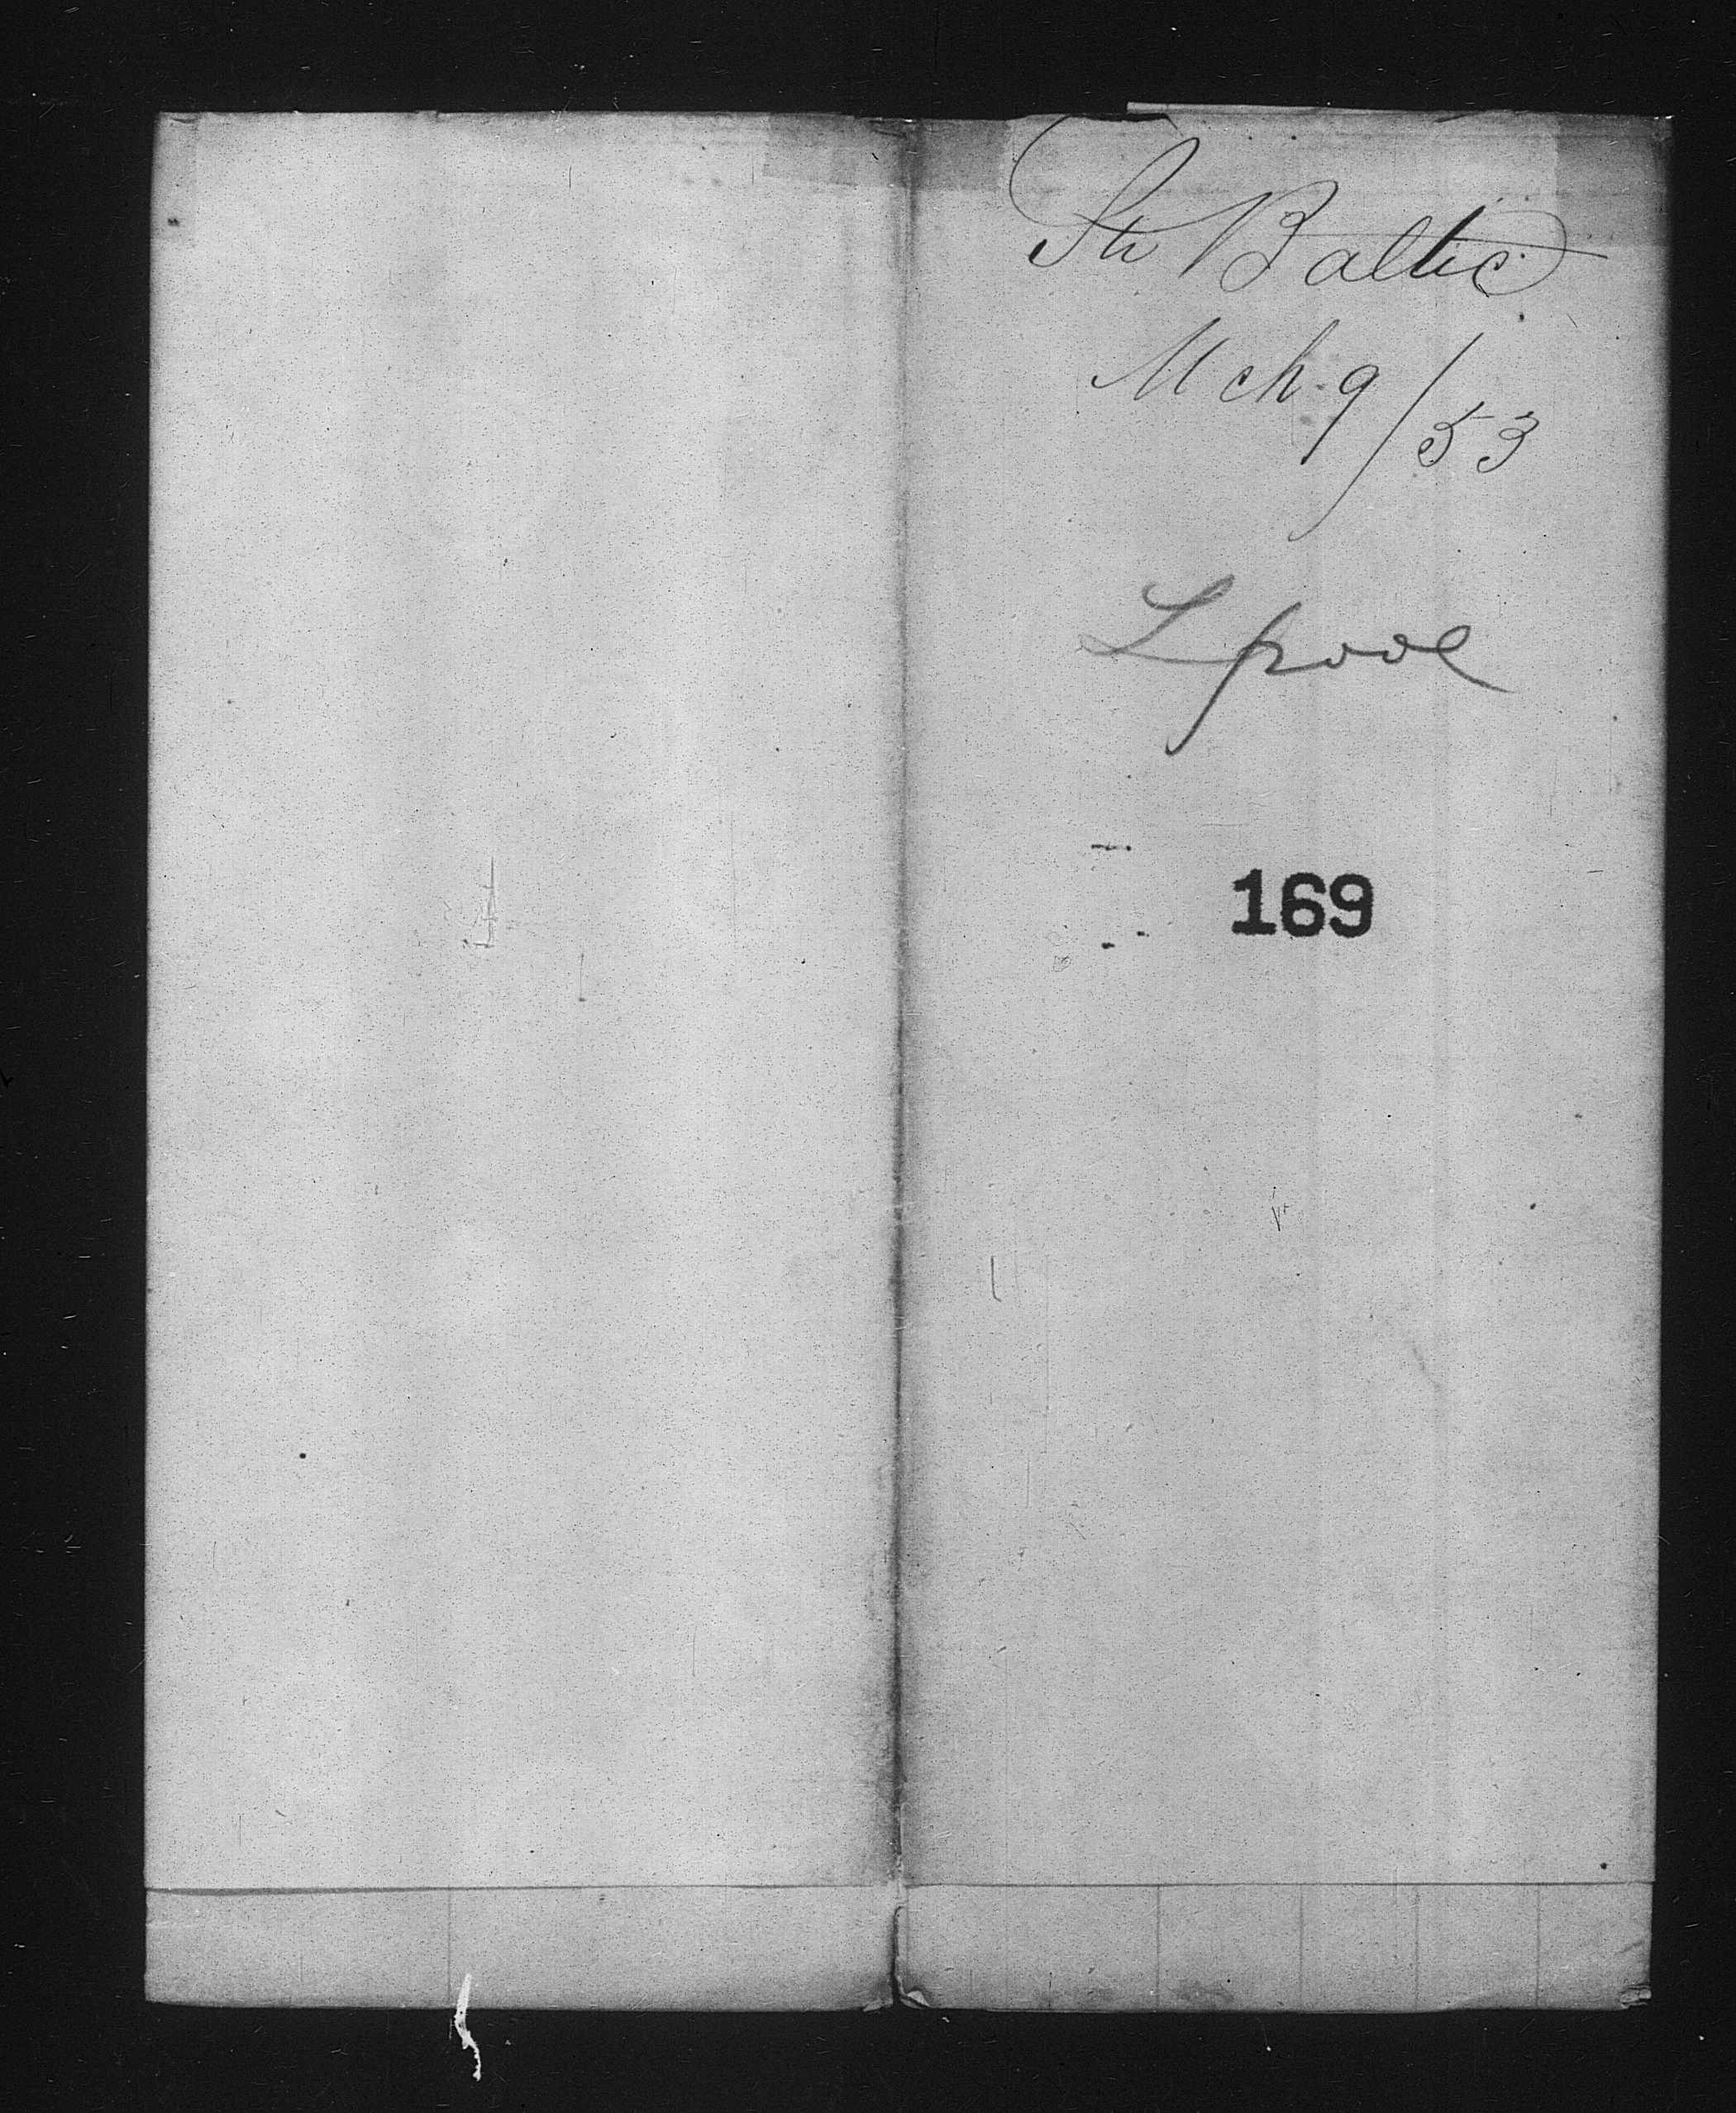 Str Baltic
Mch. 9/53
Lpool
169